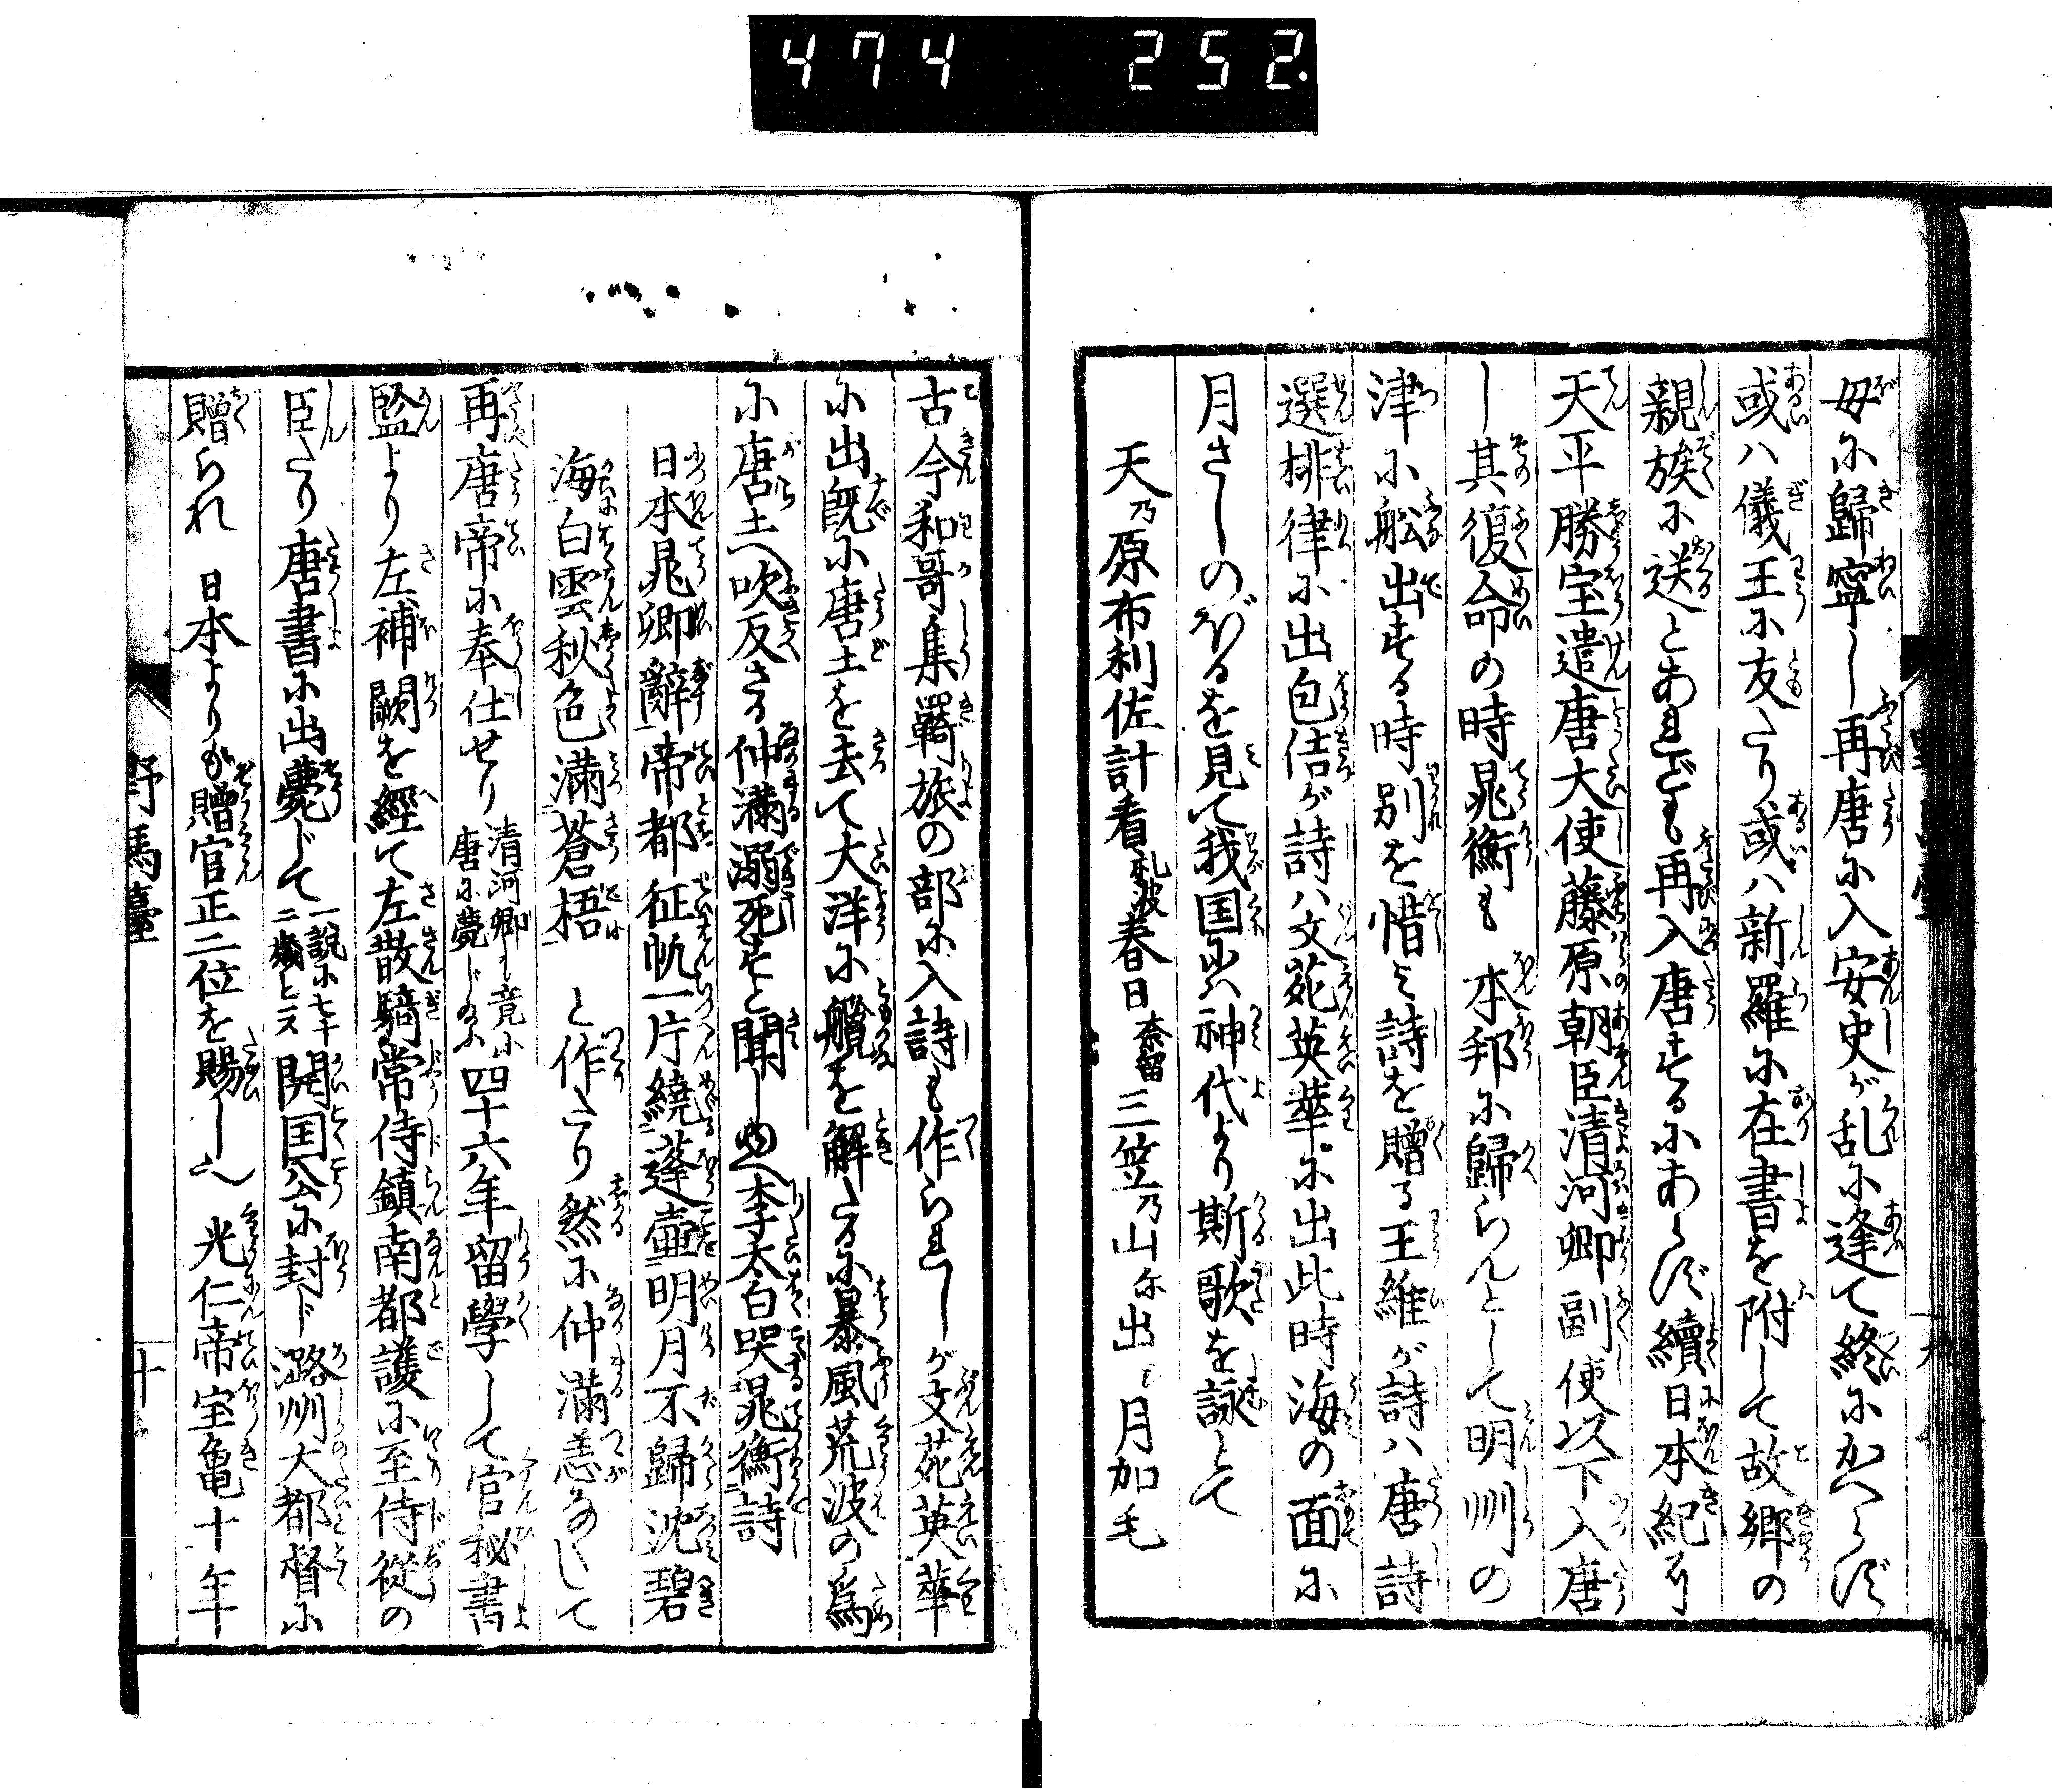 474 252.
母に歸寧し再唐に入安史が乱に逢て終にかへらず
或ハ儀王に友たり或ハ新羅に在書を附して故郷の
親族に送とあれども再入唐するにあらず續日本紀に
天平勝宝遣唐大使藤原朝臣清河卿副使以下入唐
し其復命の時晁衡も 本邦に歸らんとして明州の
津に舩出する時別を惜み詩を贈る王維が詩ハ唐詩
選排律に出包佶が詩ハ文苑英華に出此時海の面に
月さしのぼるを見て我国には神代より斯歌を詠とて
天乃原布利佐計看礼波春日奈留三笠乃山尓出〻月加毛
古今和哥集羇旅の部に入詩も作られしが文苑英華
に出既に唐土を去て大洋に艫纜を解たるに暴風荒波の爲
に唐土へ吹反さる仲満溺死すと聞しゆへ李太白哭晁衡詩
日本晁卿辭帝都征帆一片繞蓬壺明月不歸沈碧
海白雲秋色満蒼梧 と作たり然に仲満恙なくして
再唐帝に奉仕せり清河卿も竟に唐に薨じ給ふ四十六年留學して官秘書
監より左補闕を經て左散騎常侍鎮南都護に至侍從の
臣たり唐書に出薨じて一説に七十二歳と云開国公に封ド潞州大都督に
贈られ 日本よりも贈官正二位を賜しハ 光仁帝宝亀十年
野馬臺
十